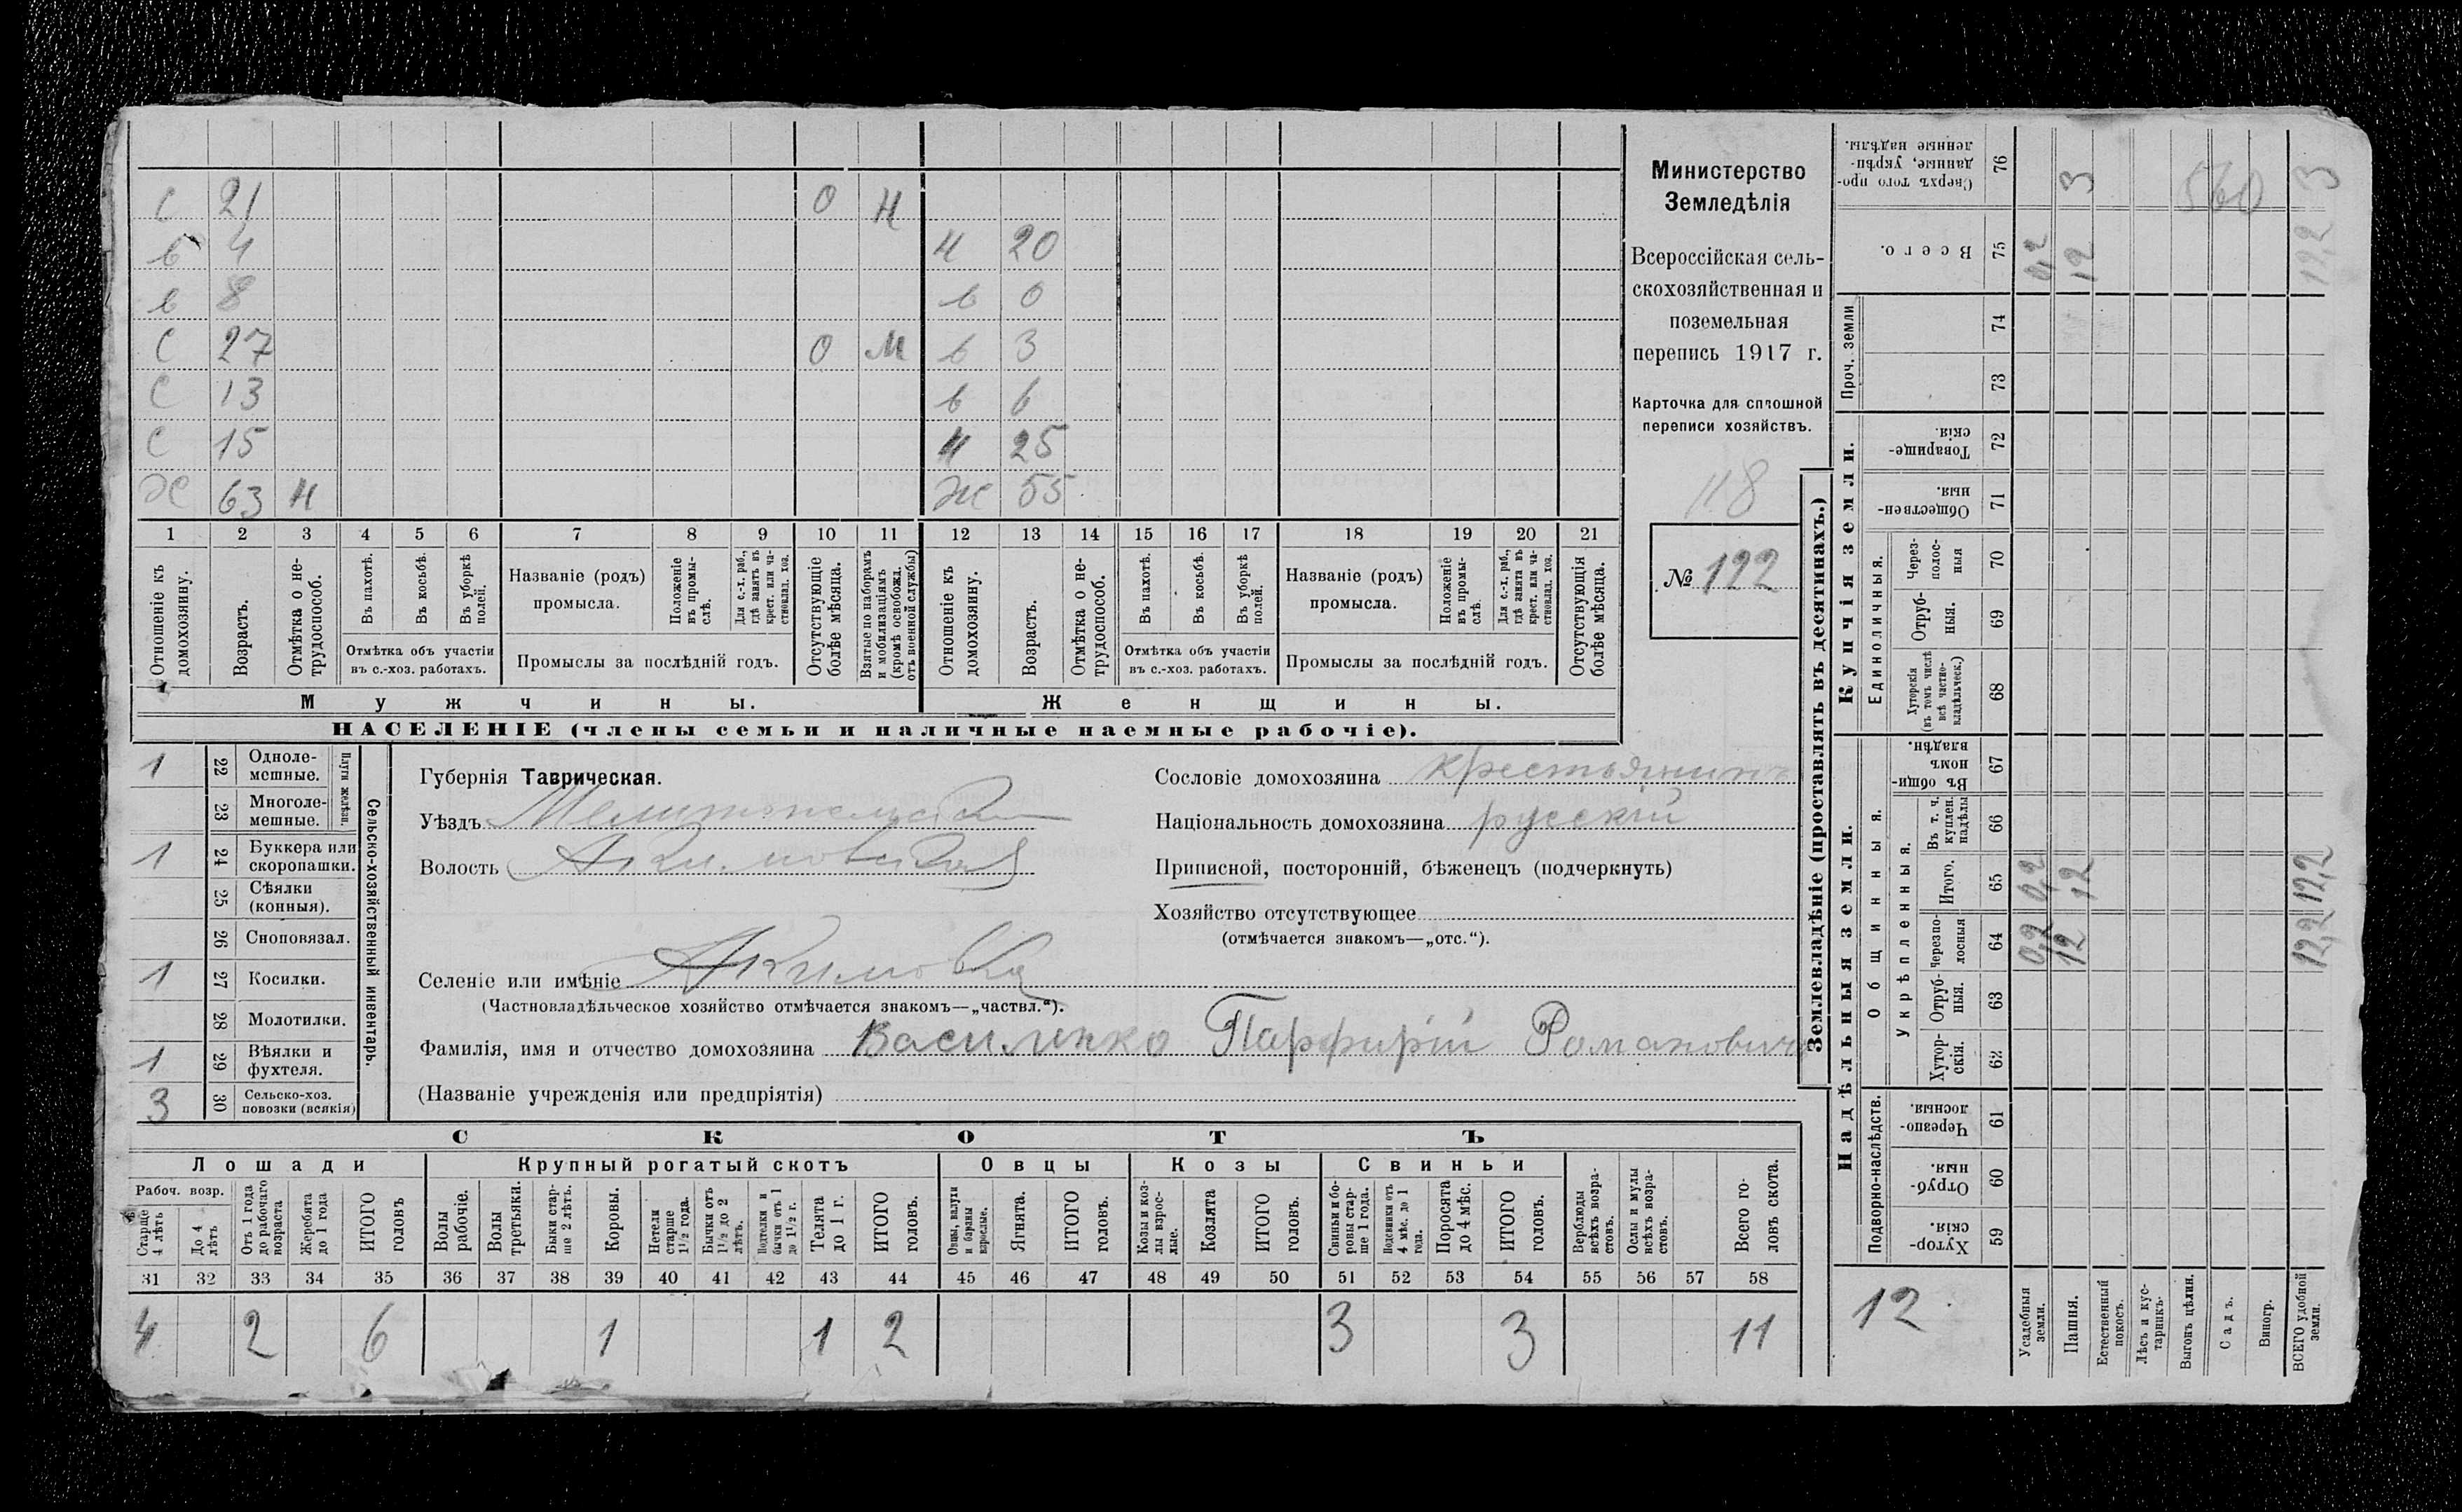 С 21 О Н
в 4 Н 20
в 8 в 0
С 27 О М в 3
С 13 в 6
С 15 Н 25
Ж 63 Н Ж 55
1 2 3 4 5 6 7 8 9 10 11 12 13 14 15 16 17 18 19 20 21
Отношеніе къ домохозяину.
Возрастъ.
Отмѣтка о не-
трудоспособ.
Въ пахотѣ.
Въ косьбѣ.
Въ уборкѣ
полей.
Отмѣтка объ участіи
въ с.-хоз. работахъ.
Названіе (родъ)
промысла.
Положеніе
въ промы-
слѣ.
Для с.-х. раб.,
гдѣ занятъ въ
крест. или ча-
стновлад. хоз.
Промыслы за послѣдній годъ.
Отсутствующіе
болѣе мѣсяца.
Взятые по наборамъ
и мобилизаціямъ
(кромѣ освобожд.
отъ военной службы)
Отношеніе къ
домохозяину.
Возрастъ.
Отмѣтка о не-
трудоспособ.
Въ пахотѣ.
Въ косьбѣ.
Въ уборкѣ
полей.
Отмѣтка объ участіи
въ с.-хоз. работахъ.
Названіе (родъ)
промысла.
Положеніе
въ промы-
слѣ.
Для с.-х. раб.,
гдѣ занята въ
крест. или ча-
стновлад. хоз.
Промыслы за послѣдній годъ.
Отсутствующія
болѣе мѣсяца.
Мужчины.
Женщины.
НАСЕЛЕНІЕ (члены семьи и наличные наемные рабочіе).
Министерство
Земледѣлія
Всероссійская сель-
скохозяйственная и
поземельная
перепись 1917 г.
Карточка для сплошной
переписи хозяйствъ.
118
№ 122
1 22 Одноле-
мешные.
23 Многоле-
мешные.
Плуги желѣзн.
1 24 Буккера или
скоропашки.
25 Сѣялки
(конныя).
26 Сноповязал.
1 27 Косилки.
28 Молотилки.
1 29 Вѣялки и
фухтеля.
3 30 Сельско-хоз.
повозки (всякія)
Сельско-хозяйственный инвентарь.
Губернія Таврическая.
Уѣздъ Мелитопольскій
Волость Акимовская
Селеніе или имѣніе Акимовка
(Частновладѣльческое хозяйство отмѣчается знакомъ—„частвл.“).
Фамилія, имя и отчество домохозяина Василенко Парфирій Романовичъ
(Названіе учрежденія или предпріятія)
Сословіе домохозяина крестьянинъ
Національность домохозяина русскій
Приписной, посторонній, бѣженецъ (подчеркнуть)
Хозяйство отсутствующее
(отмѣчается знакомъ—„отс.“).
СКОТЪ
Лошади
Крупный рогатый скотъ
Овцы
Козы
Свиньи
Рабоч. возр.
Старше
4 лѣтъ
До 4
лѣтъ
Отъ 1 года
до рабочаго
возраста
Жеребята
до 1 года
ИТОГО
головъ
Волы
рабочіе.
Волы
третьяки.
Быки стар-
ше 2 лѣтъ.
Коровы.
Нетели
старше
1½ года.
Бычки отъ
1½ до 2
лѣтъ.
Подтелки и
бычки отъ 1
до 1½ г.
Телята
до 1 г.
ИТОГО
головъ.
Овцы, валухи
и бараны
взрослые.
Ягнята.
ИТОГО
головъ.
Козы и коз-
лы взрос-
лые.
Козлята
ИТОГО
головъ.
Свиньи и бо-
ровы стар-
ше 1 года.
Подсвинки отъ
4 мѣс. до 1
года.
Поросята
до 4 мѣс.
ИТОГО
головъ.
Верблюды
всѣхъ возра-
стовъ.
Ослы и мулы
всѣхъ возра-
стовъ.
Всего го-
ловъ скота.
31 32 33 34 35 36 37 38 39 40 41 42 43 44 45 46 47 48 49 50 51 52 53 54 55 56 57 58
4 2 6 1 1 2 3 3 11
Землевладѣніе (проставлять въ десятинахъ.)
Сверхъ того про-
данные, укрѣп-
ленные надѣлы.
76 3 560 3
Всего.
75 0,2 12 12,2
Проч. земли
74
73
Купчія земли.
Товарище-
скія.
72
Обществен-
ныя.
71
Единоличныя.
Через-
полос-
ныя
70
Отруб-
ныя.
69
Хуторскія
(въ томъ числѣ
всѣ частно-
владѣльческ.)
68
Надѣльныя земли.
Общинныя.
Въ общи-
номъ
владѣн.
67
Укрѣпленныя.
Въ т. ч.
куплен.
надѣлы
66
Итого.
65 0,2 12 12,2
Черезпо-
лосныя
64 0,2 12 12,2
Отруб-
ныя.
63
Хутор-
скія.
62
Подворно-наслѣдств.
Черезпо-
лосныя.
61
Отруб-
ныя.
60
Хутор-
скія.
59
12
Усадебныя
земли.
Пашня.
Естественный
покосъ.
Лѣсъ и кус-
тарникъ.
Выгонъ цѣлин.
Садъ.
Виногр.
ВСЕГО удобной
земли.